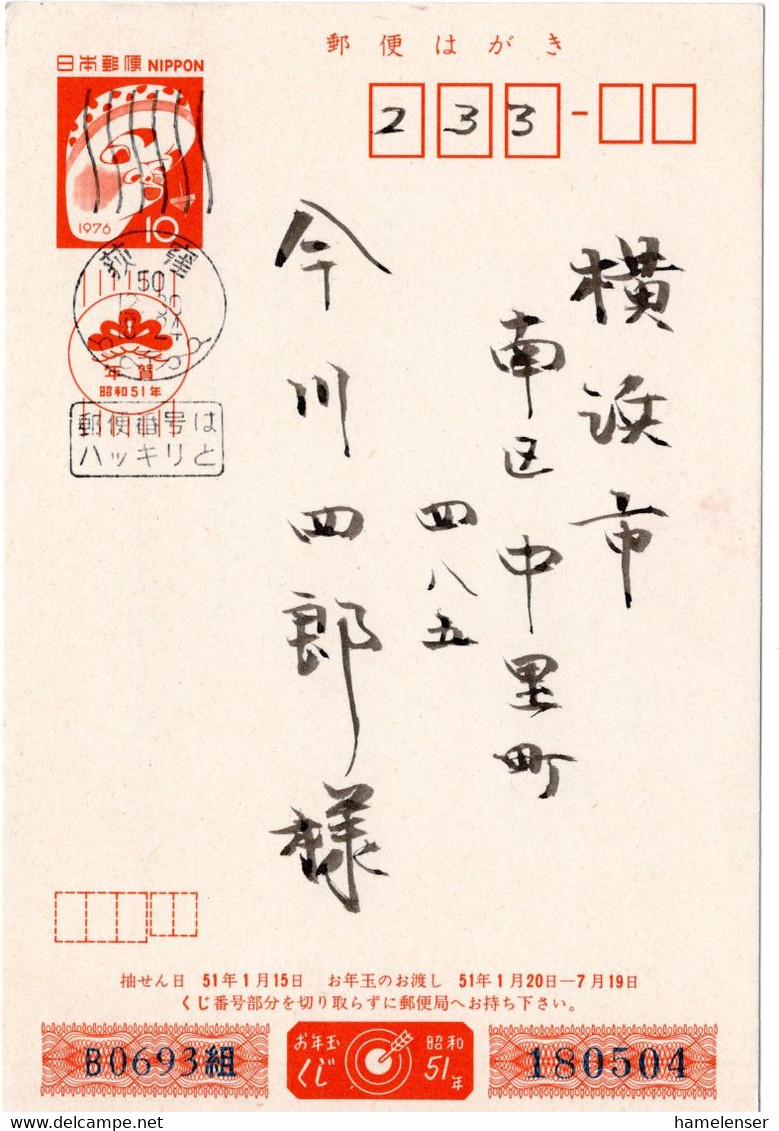 郵便はがき
日本郵便 NIPPON
1976 10
233-
荻窪
50
年賀
昭和51年
郵便番号は
ハッキリと
横浜市
南区中里町
四八五
今川四郎様
抽せん日 51年1月15日 お年玉のお渡し 51年1月20日―7月19日
くじ番号部分を切り取らずに郵便局へお持ち下さい。
B0693組
お年玉くじ
昭和51年
180504
hamelenser